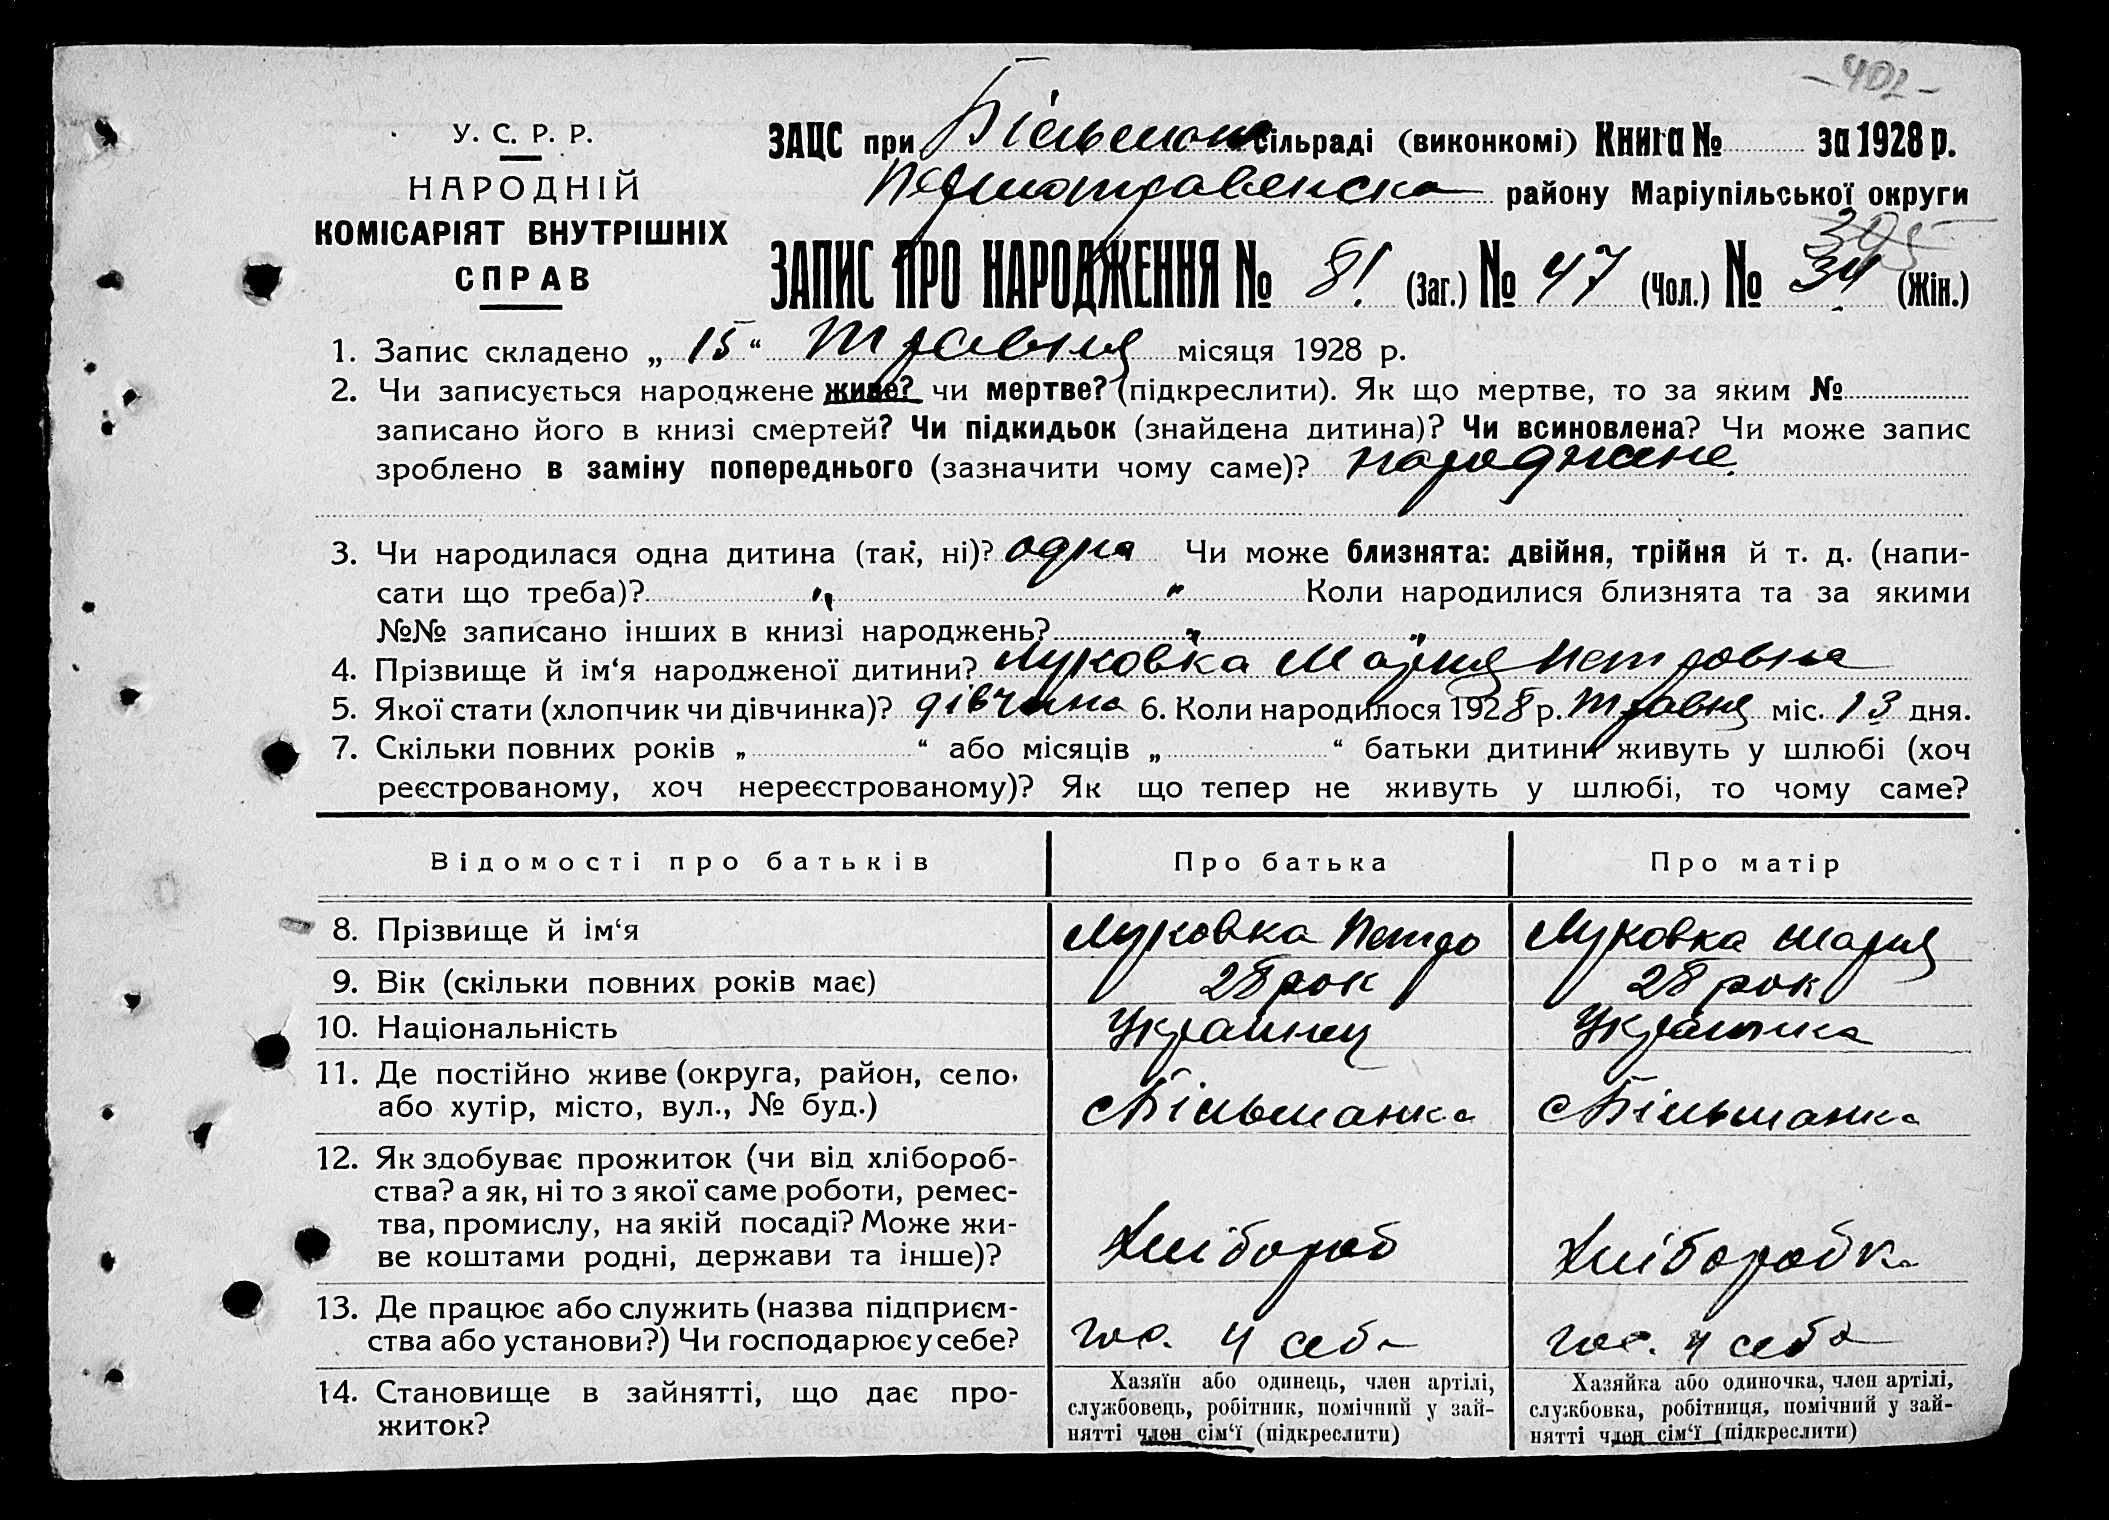 - 402 -
У. С. Р. Р.
НАРОДНІЙ
КОМІСАРІЯТ ВНУТРІШНІХ
СПРАВ
ЗАЦС при Більман сільраді (виконкомі) Книга № за 1928 р.
Першотравенска району Маріупільської округи
395
ЗАПИС ПРО НАРОДЖЕННЯ № 81 (Заг.) № 47 (Чол.) № 34 (Жін.)
1. Запис складено „ 15 “ Травня місяця 1928 р.
2. Чи записується народжене живе? чи мертве? (підкреслити). Як що мертве, то за яким №
записано його в книзі смертей? Чи підкидьок (знайдена дитина)? Чи всиновлена? Чи може запис
зроблено в заміну попереднього (зазначити чому саме)? народжене.
3. Чи народилася одна дитина (так, ні)? одна Чи може близнята: двійня, трійня й т. д. (напи-
сати що треба)? „ „ Коли народилися близнята та за якими
№№ записано інших в книзі народжень? „ „
4. Прізвище й ім‘я народженої дитини? Луковка Мария Петровна
5. Якої стати (хлопчик чи дівчинка)? дівчина 6. Коли народилося 1928 р. травня міс. 13 дня.
7. Скільки повних років „ “ або місяців „ “ батьки дитини живуть у шлюбі (хоч
реєстрованому, хоч нереєстрованому)? Як що тепер не живуть у шлюбі, то чому саме?
Відомості про батьків Про батька Про матір
8. Прізвище й ім‘я Луковка Петро Луковка Мария
9. Вік (скільки повних років має) 28 рок 28 рок
10. Національність Украинец Украинка
11. Де постійно живе (округа, район, село,
або хутір, місто, вул., № буд.) с Більманка с Більманка
12. Як здобуває прожиток (чи від хлібороб-
ства? а як, ні то з якої саме роботи, ремес-
тва, промислу, на якій посаді? Може жи-
ве коштами родні, держави та інше)? Хлібороб Хліборобка
13. Де працює або служить (назва підприєм-
ства або установи?) Чи господарює у себе? гос. у себа гос. у себа
14. Становище в зайнятті, що дає про-
житок?
Хазяїн або одинець, член артілі,
службовець, робітник, помічний у зай-
нятті член сім‘ї (підкреслити)
Хазяйка або одиночка, член артілі,
службовка, робітниця, помічний у зай-
нятті член сім‘ї (підкреслити)